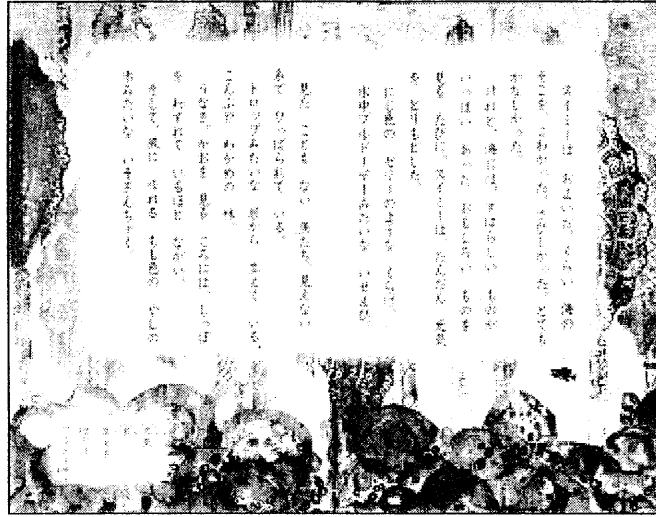 スイミーは およいだ、くらい 海の
そこを。こわかった。さびしかった。とても
かなしかった。
けれど、海には、すばらしい ものが
いっぱい あった。おもしろい ものを
見る たびに、スイミーは、だんだん 元気
を とりもどした。
にじ色の ゼリーのような くらげ。
水中ブルドーザーみたいな いせえび。
見た ことも ない 魚たち。見えない
糸で ひっぱられて いる。
ドロップみたいな 岩から 生えて いる、
こんぶや わかめの 林。
うなぎ。かおを 見る ころには、しっぽ
を わすれて いるほど ながい。
そして、風に ゆれる もも色の やしの木
みたいな いそぎんちゃく。